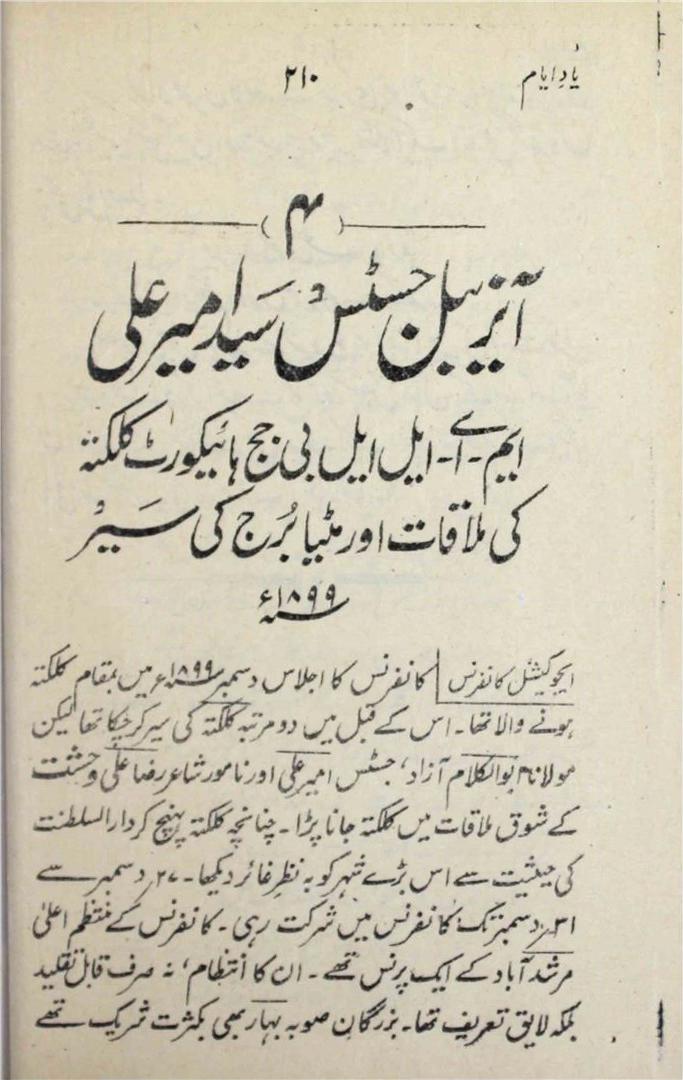 یادِ ایام
۲۱۰
(۴)
آنریبل جسٹس سید امیر علی
ایم۔اے۔ایل ایل بی جج ہائیکورٹ کلکتہ
کی ملاقات اور مٹیا بُرج کی سیر
۱۸۹۹ء
ایجوکیشنل کانفرنس کانفرنس کا اجلاس دسمبر ۱۸۹۹ء میں بمقام کلکتہ
ہونے والا تھا۔ اس کے قبل میں دو مرتبہ کلکتہ کی سیر کر چکا تھا لیکن
مولانا ابوالکلام آزاد، جسٹس امیر علی اور نامور شاعر رضا علی وحشت
کے شوق ملاقات میں کلکتہ جانا پڑا۔ چنانچہ کلکتہ پہنچ کر دارالسلطنت
کی حیثیت سے اس بڑے شہر کو بہ نظرِ غائر دیکھا۔ ۲۷؍ دسمبر سے
۳۱؍ دسمبر تک کانفرنس میں شرکت رہی۔ کانفرنس کے منتظم اعلیٰ
مرشد آباد کے ایک پرنس تھے۔ ان کا انتظام، نہ صرف قابل تقلید
بلکہ لایق تعریف تھا۔ بزرگان صوبہ بہار بھی بکثرت شریک تھے